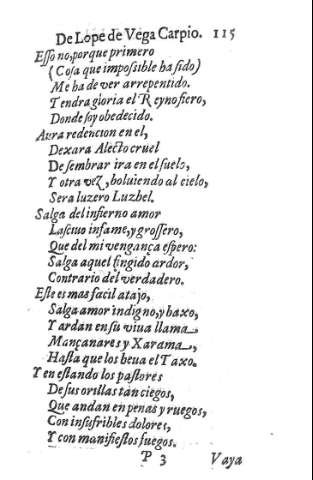 De Lope de Vega Carpio. 115
Eſſo no, porque primero
(Coſa que impoſsible ha ſido)
Me ha de ver arrepentido.
Tendra gloria el Reyno fiero,
Donde ſoy obedecido.
Aura redencion en el,
Dexara Alecto cruel
De ſembrar ira en el ſuelo,
Y otra vez, boluiendo al cielo,
Sera luzero Luzbel.
Salga del infierno amor
Laſciuo infame, y groſſero,
Que del mi vengança eſpero:
Salga aquel fingido ardor,
Contrario del verdadero.
Eſte es mas facil atajo,
Salga amor indigno, y baxo,
Y ardan en ſu viua llama,
Mançanares y Xarama,
Haſta que los beua el Taxo.
Y en eſtando los paſtores
De ſus orillas tan ciegos,
Que andan en penas y ruegos,
Con inſufribles dolores,
Y con manifieſtos fuegos.
P 3 Vaya